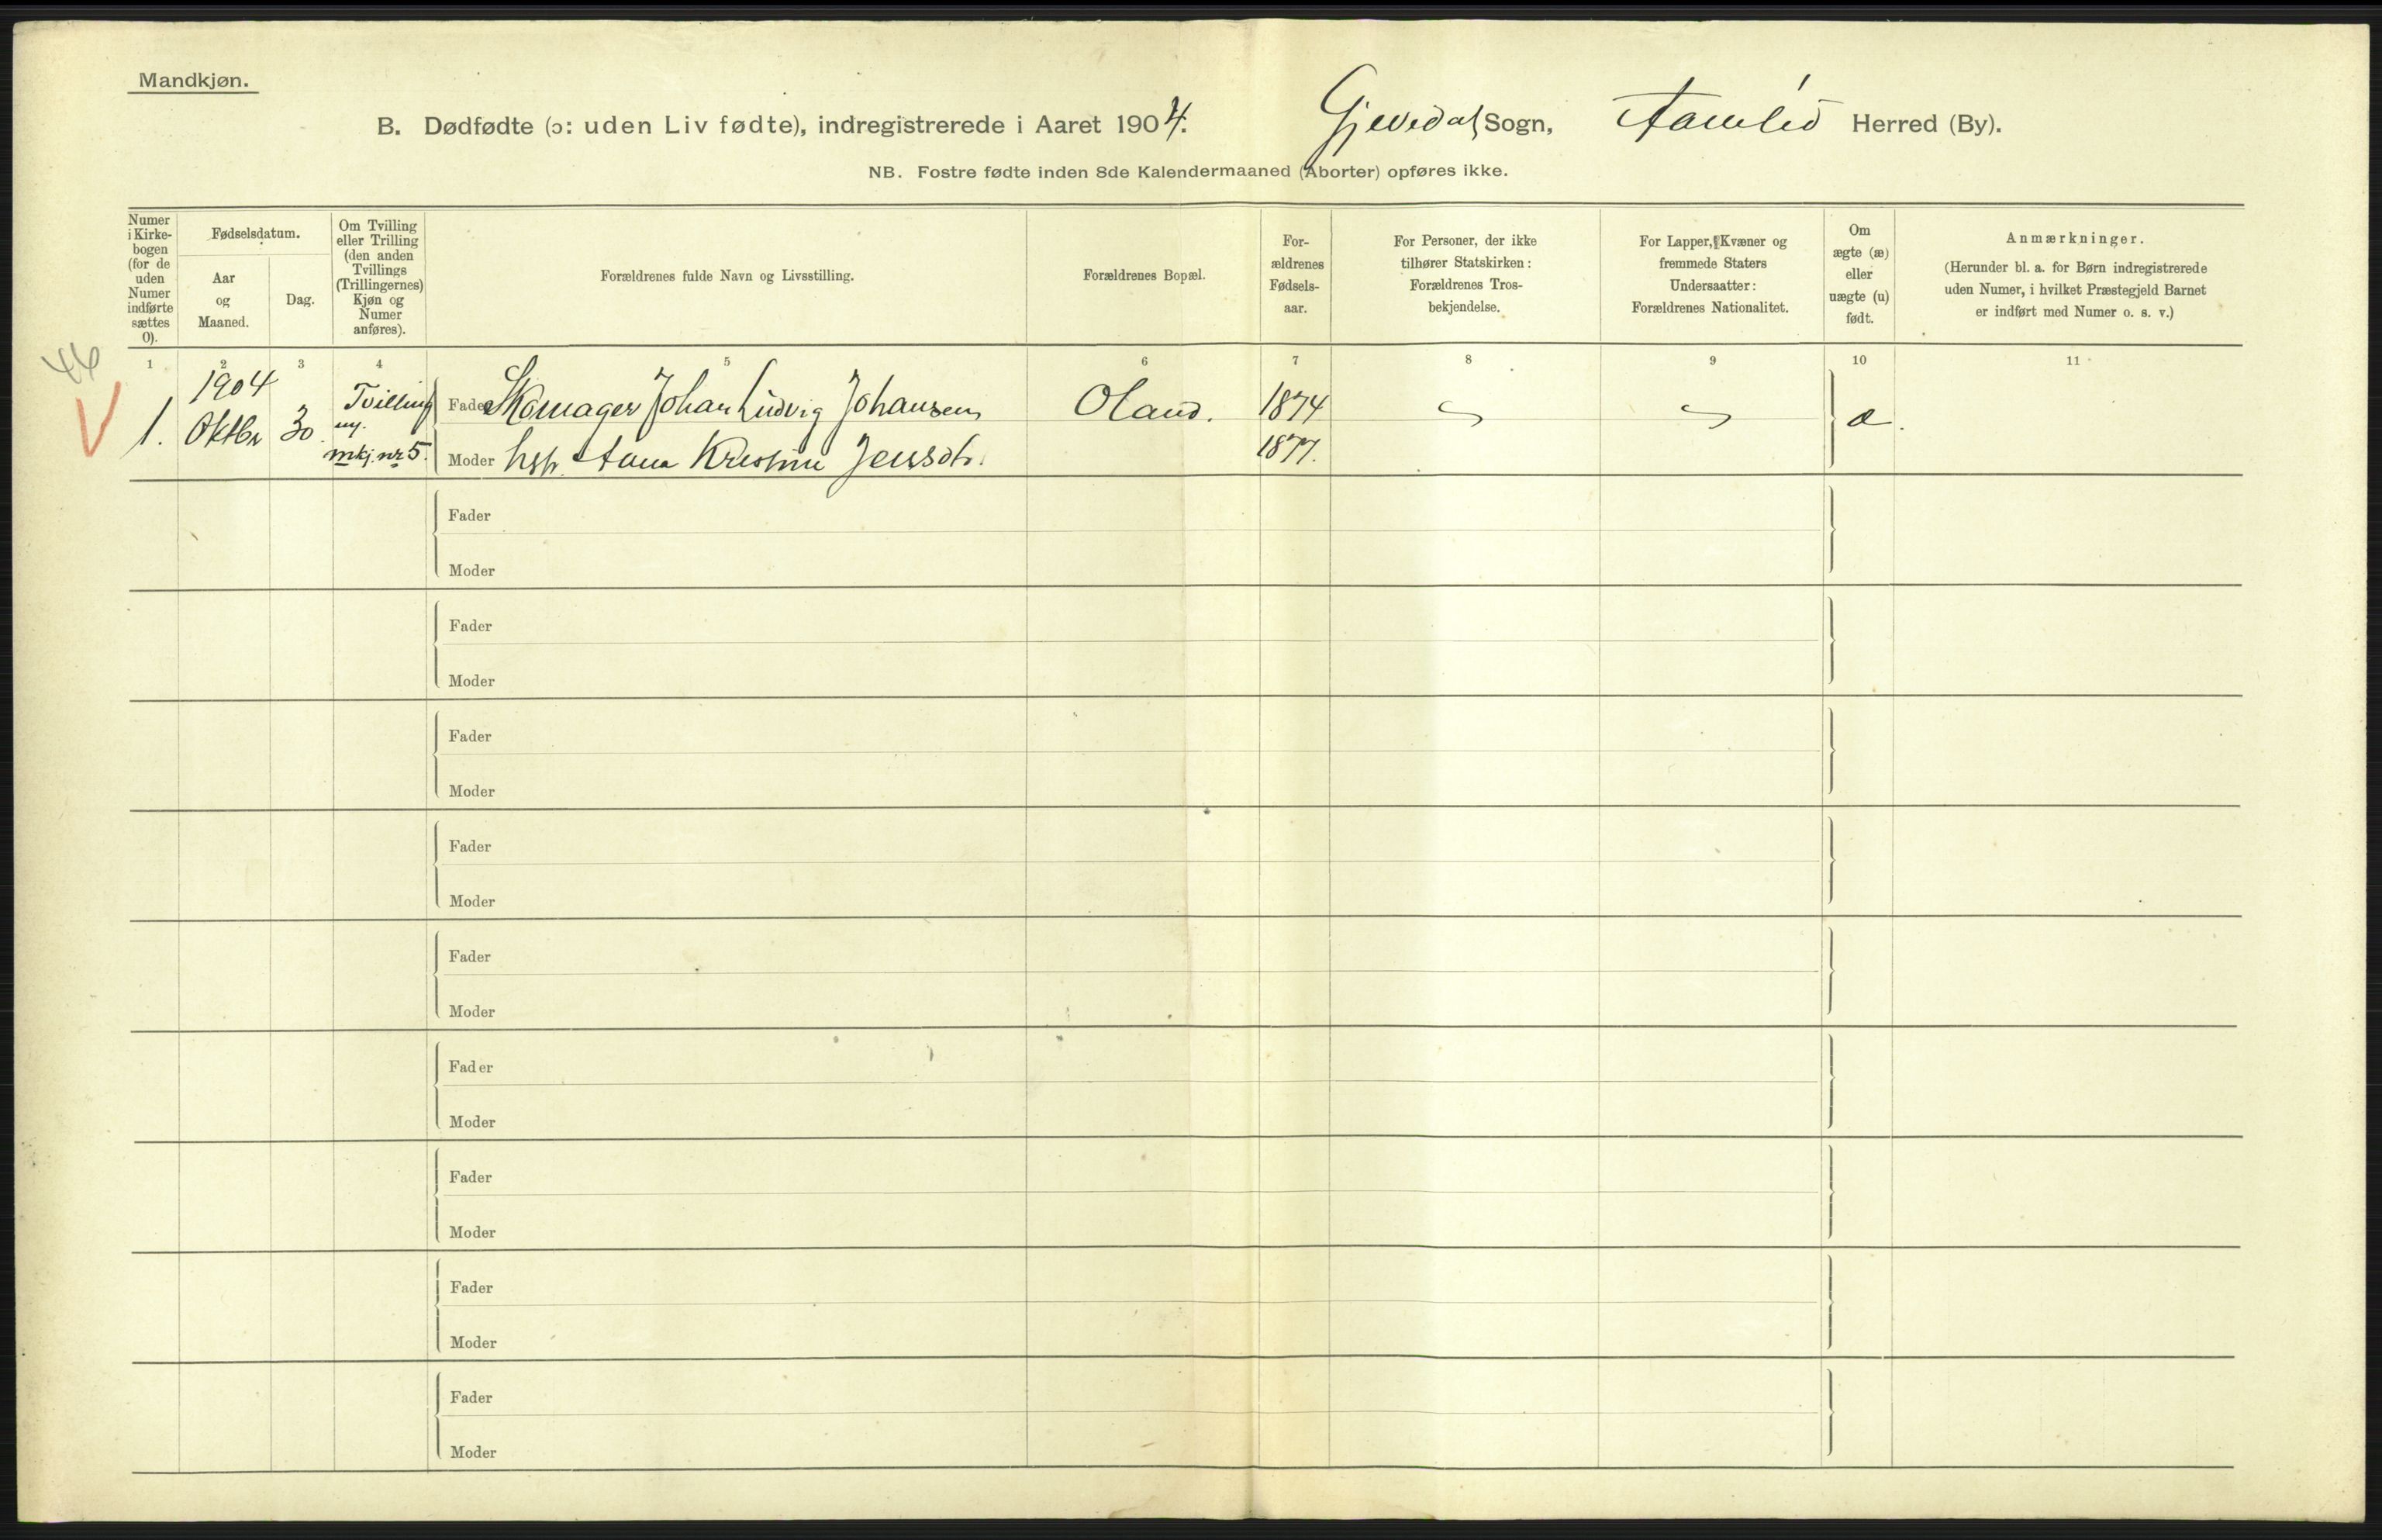 Mandkjøn.
B. Dødfødte (ɔ: uden Liv fødte), indregistrerede i Aaret 1904. Gjevedal Sogn, Aamlid Herred (By).
NB. Fostre fødte inden 8de Kalendermaaned (Aborter) opføres ikke.
Numer
i Kirke-
bogen
(for de
uden
Numer
indførte
sættes
0).
Fødselsdatum.
Aar
og
Maaned.
Dag.
Om Tvilling
eller Trilling
(den anden
Tvillings
(Trillingernes)
Kjøn og
Numer
anføres).
Forældrenes fulde Navn og Livsstilling.
Forældrenes Bopæl.
For-
ældrenes
Fødsels-
aar.
For Personer, der ikke
tilhører Statskirken:
Forældrenes Tros-
bekjendelse.
For Lapper, Kvæner og
fremmede Staters
Undersaatter:
Forældrenes Nationalitet.
Om
ægte (æ)
eller
uægte (u)
født.
Anmærkninger.
(Herunder bl. a. for Børn indregistrerede
uden Numer, i hvilket Præstegjeld Barnet
er indført med Numer o. s. v.)
1 2 3 4 5 6 7 8 9 10 11
46
1. 1904
Oktbr 30.
Tvilling
m.
mkj. nr 5.
Fader Skomager Johan Ludvig Johansen Oland. 1874 æ.
Moder hstr. Anna Kristine Jensdtr. 1877.
Fader
Moder
Fader
Moder
Fader
Moder
Fader
Moder
Fader
Moder
Fader
Moder
Fader
Moder
Fader
Moder
Fader
Moder